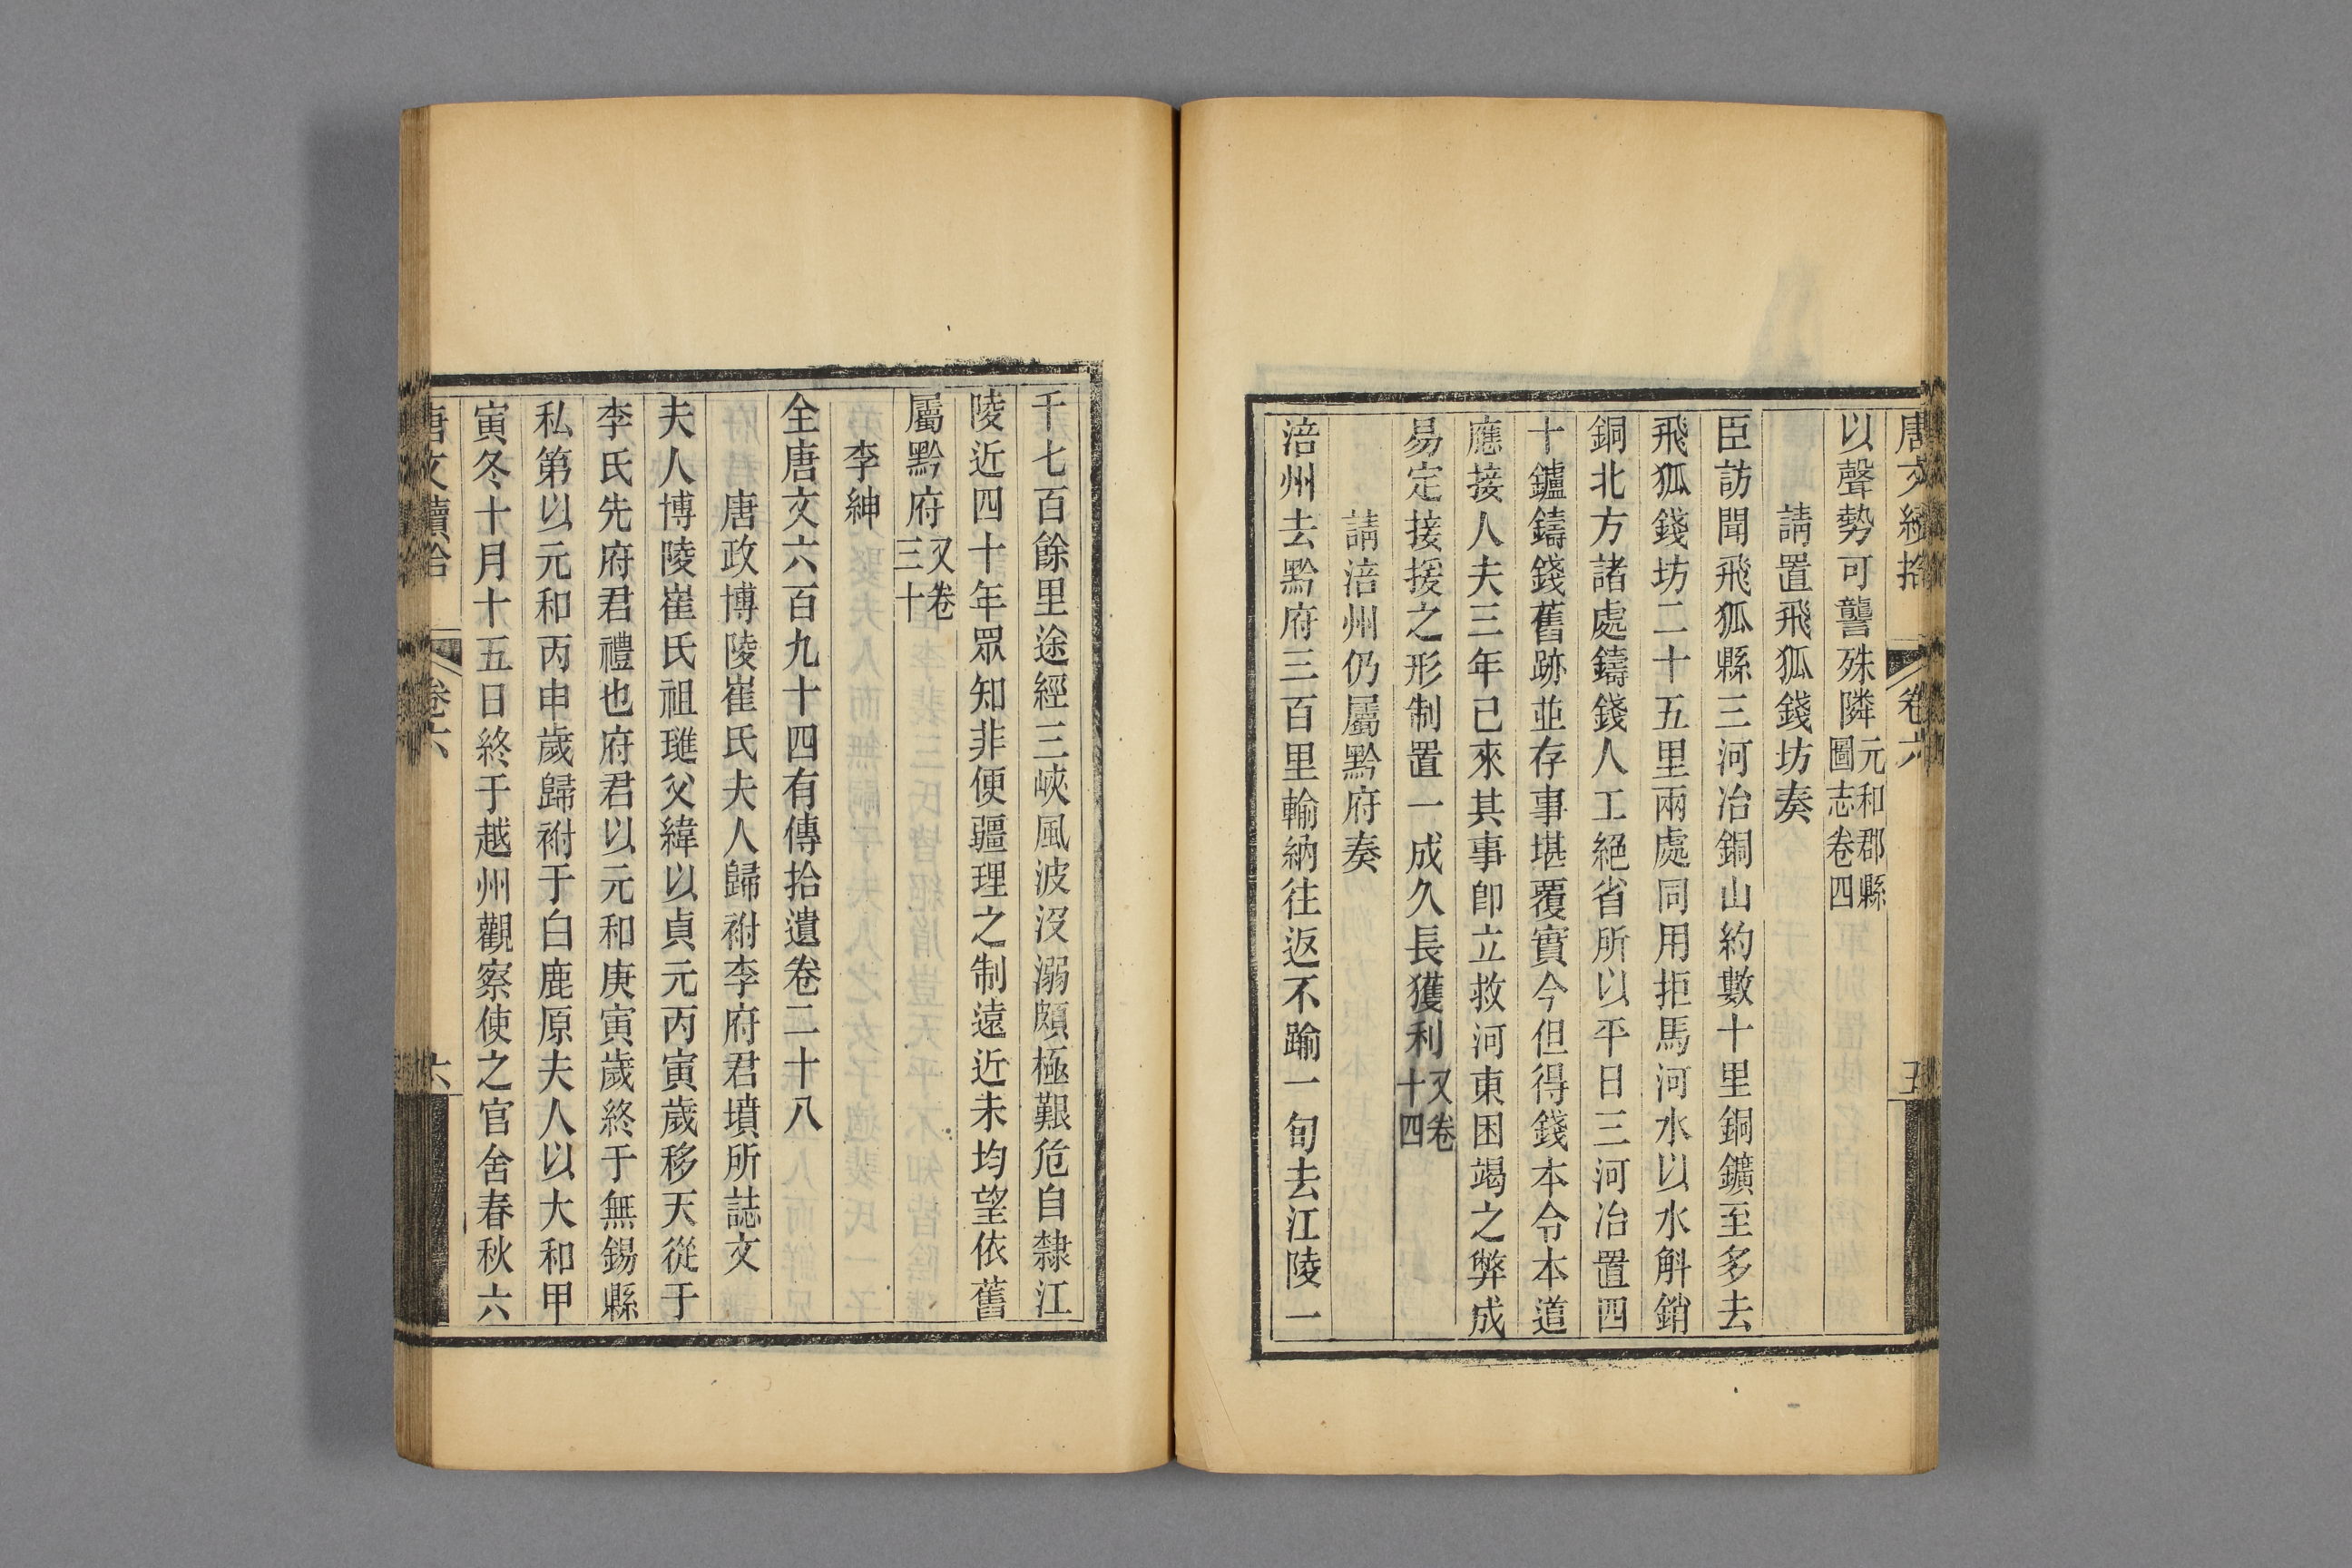 唐文續拾 卷六 五
以聲勢可讋殊隣元和郡縣圖志卷四
請置飛狐錢坊奏
臣訪聞飛狐縣三河冶銅山約數十里銅鑛至多去
飛狐錢坊二十五里兩處同用拒馬河水以水斛銷
銅北方諸處鑄錢人工絕省所以平日三河冶置四
十鑪鑄錢舊跡並存事堪覆實今但得錢本令本道
應接人夫三年已來其事卽立救河東困竭之弊成
易定接援之形制置一成久長獲利又卷十四
請涪州仍屬黔府奏
涪州去黔府三百里輸納往返不踰一旬去江陵一
千七百餘里途經三峽風波沒溺頗極艱危自隸江
陵近四十年眾知非便疆理之制遠近未均望依舊
屬黔府又卷三十
李紳
全唐文六百九十四有傳拾遺卷二十八
唐政博陵崔氏夫人歸祔李府君墳所誌文
夫人博陵崔氏祖璡父緯以貞元丙寅歲移天從于
李氏先府君禮也府君以元和庚寅歲終于無錫縣
私第以元和丙申歲歸祔于白鹿原夫人以大和甲
寅冬十月十五日終于越州觀察使之官舍春秋六
唐文續拾 卷六 六